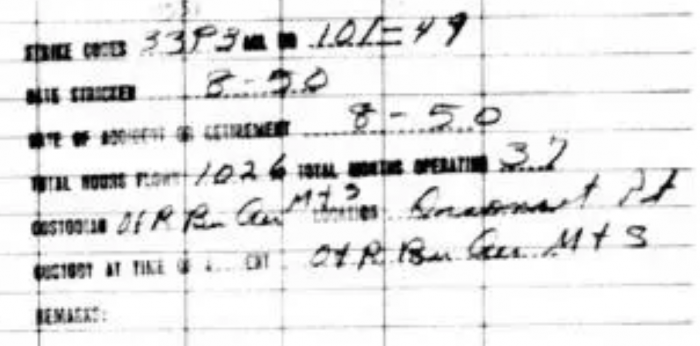 STRIKE CODES 33P3 AAR NO 101=49
DATE STRICKEN 8-50
DATE OF ACCIDENT OR RETIREMENT 8-50
TOTAL HOURS FLOWN 1026 TOTAL MONTHS OPERATING 37
CUSTODIAN O&R Bu Aer M&S LOCATION Quonset Pt
CUSTODY AT TIME OF O&R Bu Aer M&S
REMARKS: